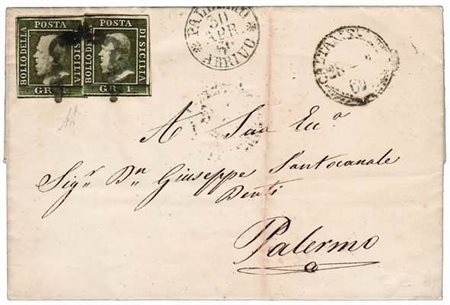 BOLLO DELLA POSTA DI SICILIA GR. 1.
BOLLO DELLA POSTA DI SICILIA GR. 1.
PALERMO
30
APR
ARRIVO
A San Ecc.ª
Sigr. Dn. Giuseppe Santocanale
Denti
Palermo